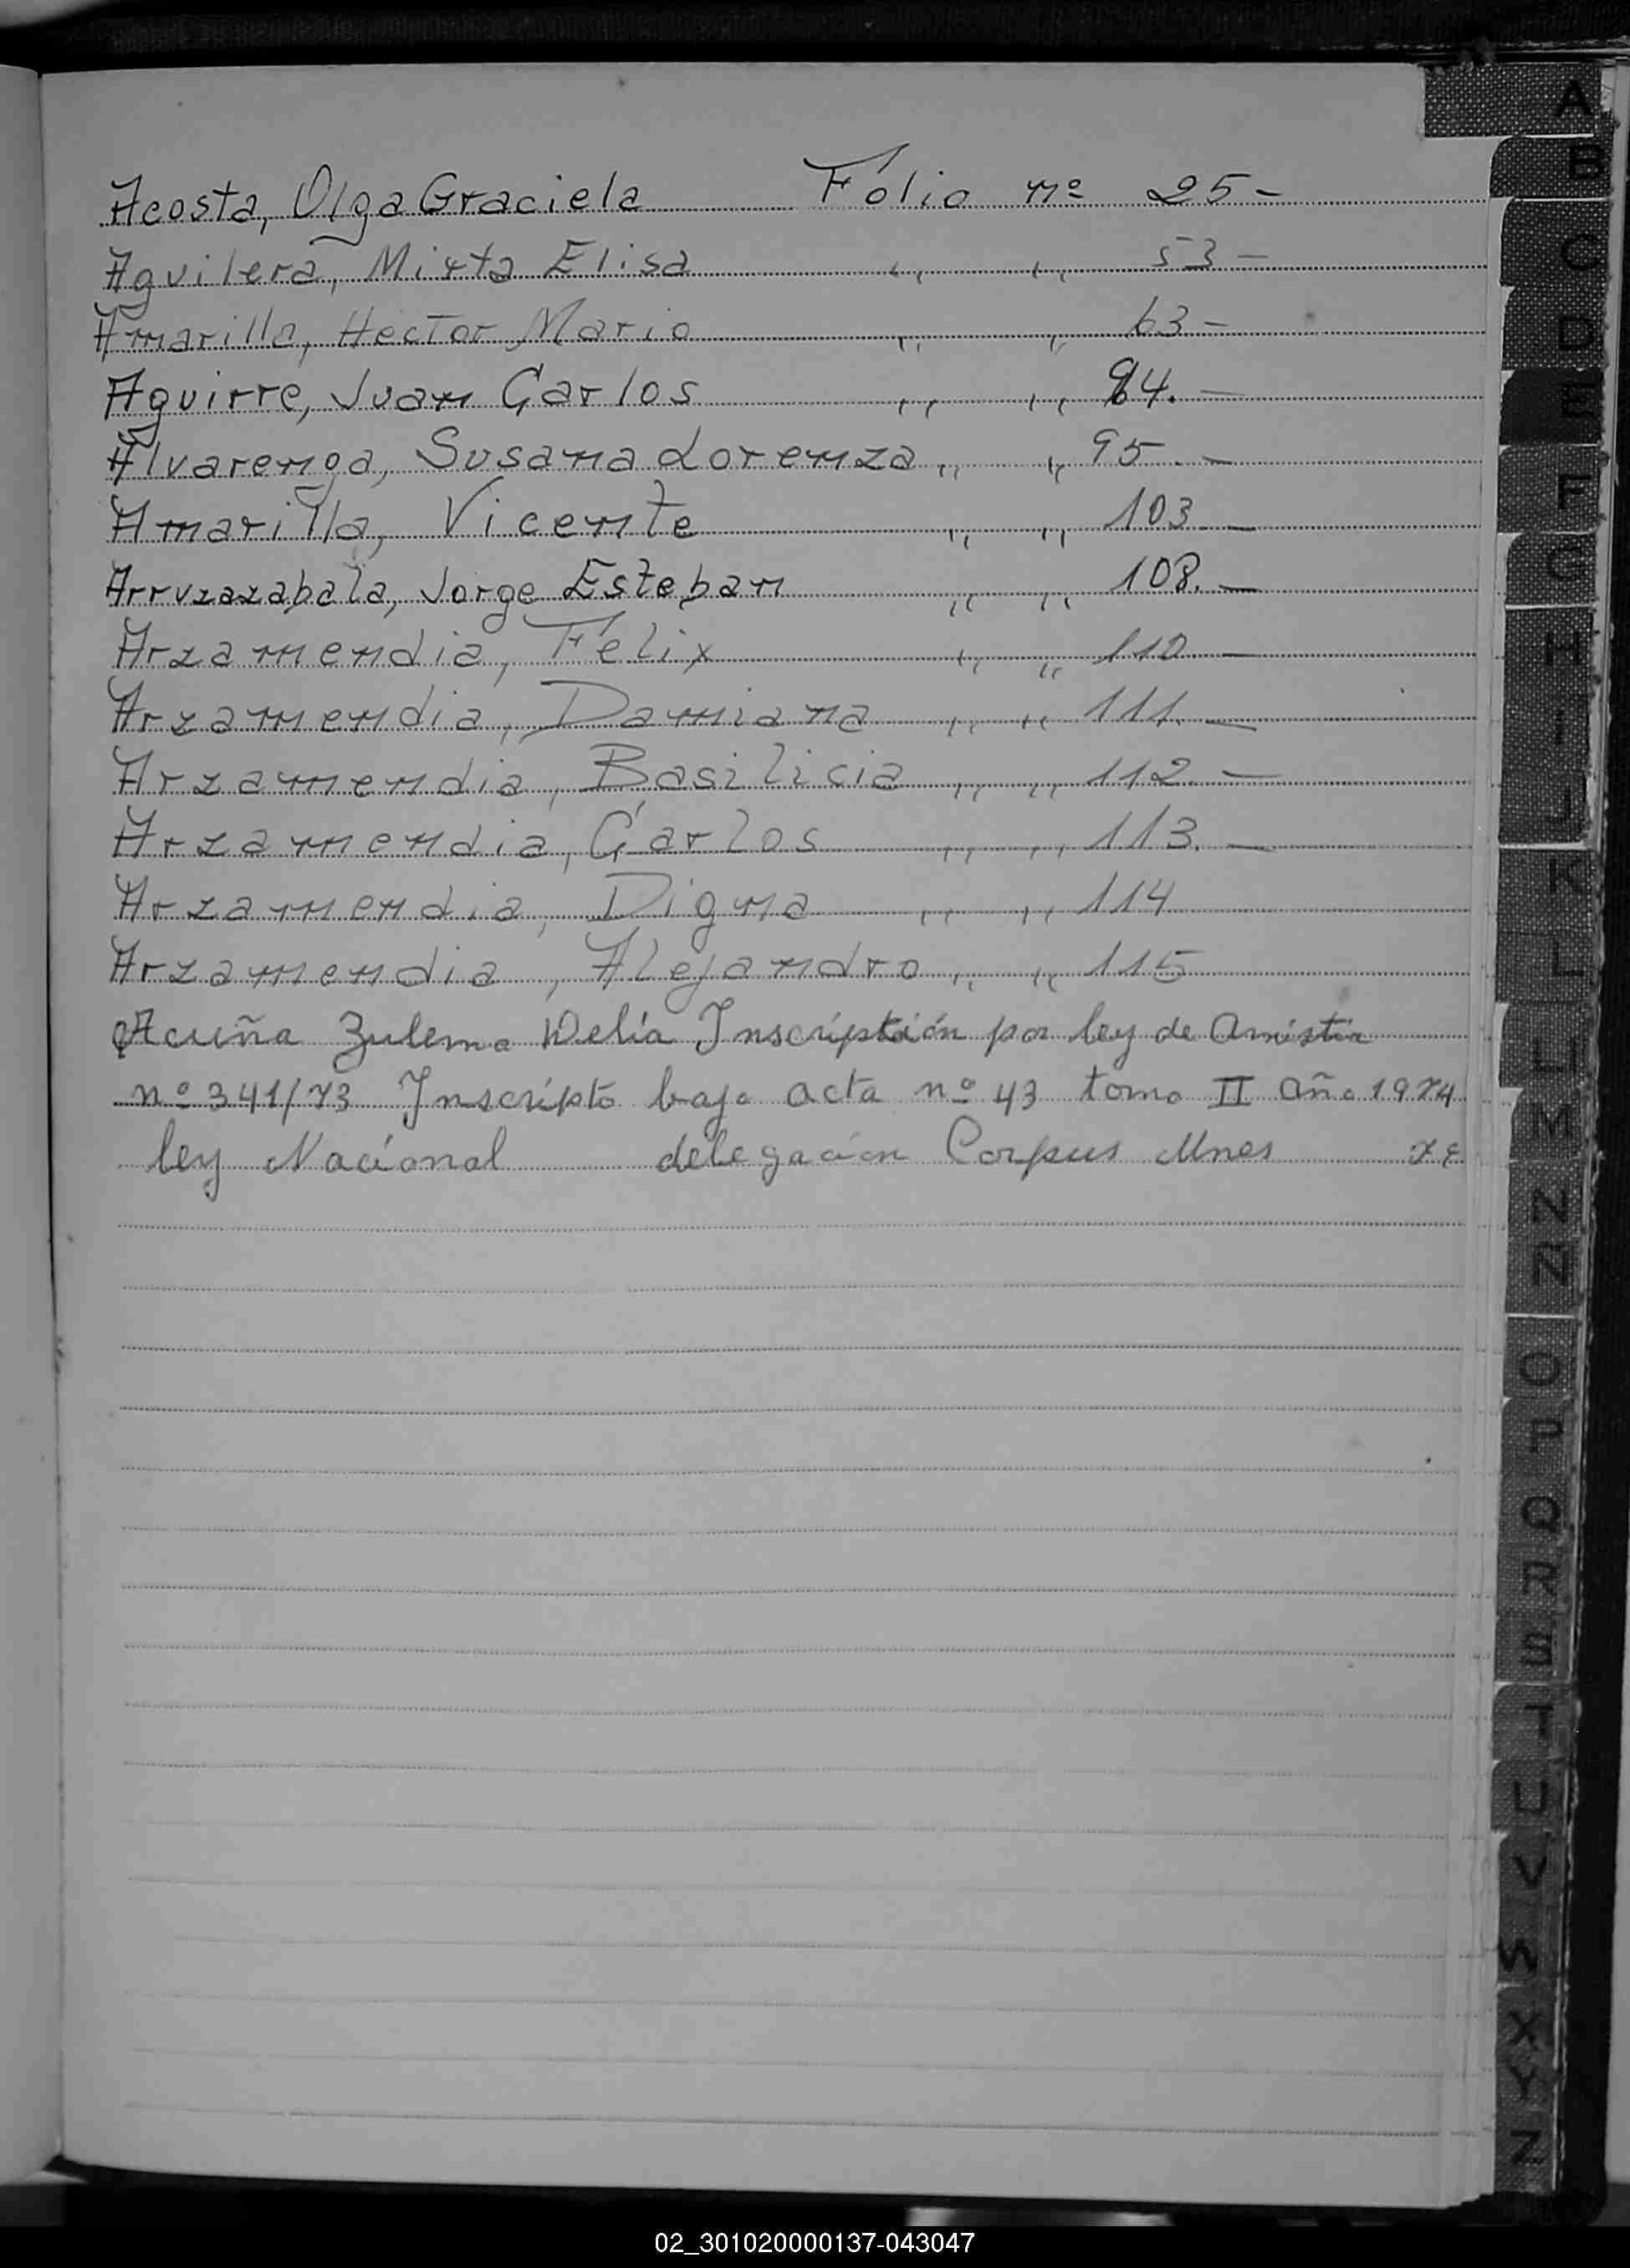 Acosta, Olga Graciela Fólio nº 25-
Aguilera, Mirta Elisa ,, ,, 53-
Amarilla, Hector Mario ,, ,, 63-
Aguirre, Juan Carlos ,, ,, 94.-
Alvarenga, Susana Lorenza ,, ,, 95.-
Amarilla, Vicente ,, ,, 103-
Arruzazabala, Jorge Esteban ,, ,, 108.-
Arzamendia, Félix ,, ,, 110-
Arzamendia, Damiana ,, ,, 111.-
Arzamendia, Basilicia ,, ,, 112.-
Arzamendia, Carlos ,, ,, 113.-
Arzamendia, Digna ,, ,, 114
Arzamendia, Alejandro ,, ,, 115
Acuña Zulema Delia Inscripción por ley de Amistia
nº 341/73 Inscripto bajo acta nº 43 tomo II año 1974
ley Nacional delegación Corpus Mnes
A
B
C
D
E
F
G
H
I
J
K
L
LL
M
N
Ñ
O
P
Q
R
S
T
U
V
W
X
Y
Z
02_301020000137-043047